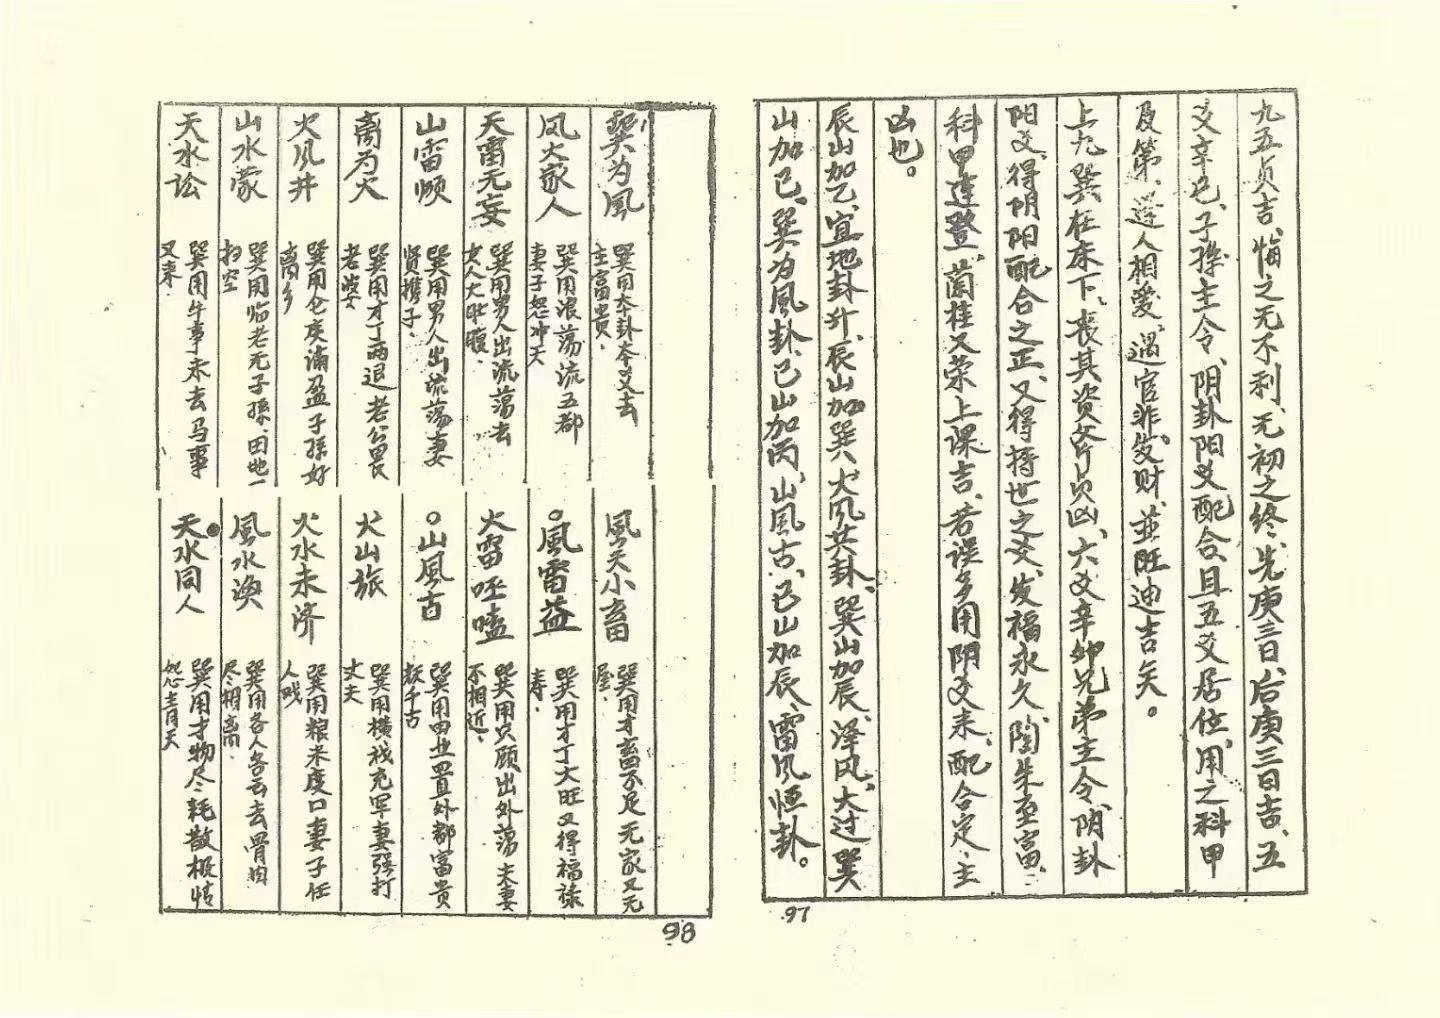 九五贞吉、悔之无不利、无初之终、先庚三日、后庚三日吉、五
爻辛巳、子孫主令、阴卦阳爻配合、且五爻居位、用之科甲
及第、逢人相愛、遇官非、发财、並旺迪吉矣。
上九巽在床下、丧其资斧贞凶、六爻辛卯兄弟主令、阴卦
阳爻、得阴阳配合之正、又得持世之爻、发福永久、陶朱至富、
科甲連登、蘭桂又荣、上课吉、若误多用阴爻来、配合定主
凶也。
辰山加乙、宜地卦升、辰山加巽、火风共卦、巽山加辰、泽风、大过巽
山加巳、巽为風卦、巳山加丙、山風古、巳山加辰、雷风恒卦。
97
巽为風
巽用本卦本爻去
主富貴、
风火家人
巽用浪荡流五都
妻子怨冲天
天雷无妄
巽用男人出流蕩去
女人大肚腹、
山雷頤
巽用男人出流荡妻
贤携子、
离为火
巽用才丁两退老公畏
老婆
火风井
巽用仓庆满盈子孫好
离乡
山水蒙
巽用临老无子孫、田地一
扫空
天水讼
巽用牛事未去马事
又来、
風天小畜
巽用才畜不足无家又无
屋、
風雷益
巽用才丁大旺又得福禄
寿、
火雷噬嗑
巽用只顾出外荡夫妻
不相近、
山風古
巽用田地置外都富贵
千古
火山旅
巽用横找充军妻强打
丈夫
火水未济
巽用粮米度口妻子任
人戏
風水涣
巽用各人各去去骨肉
尽相离、
天水同人
巽用才物尽耗散极怙
怨青天
98